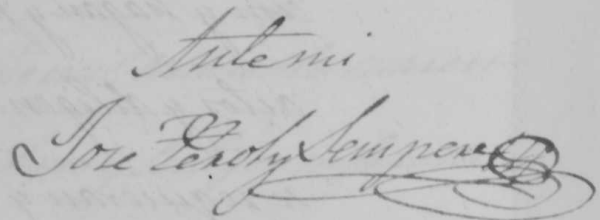 Antemi
Jose Peroly Sempere